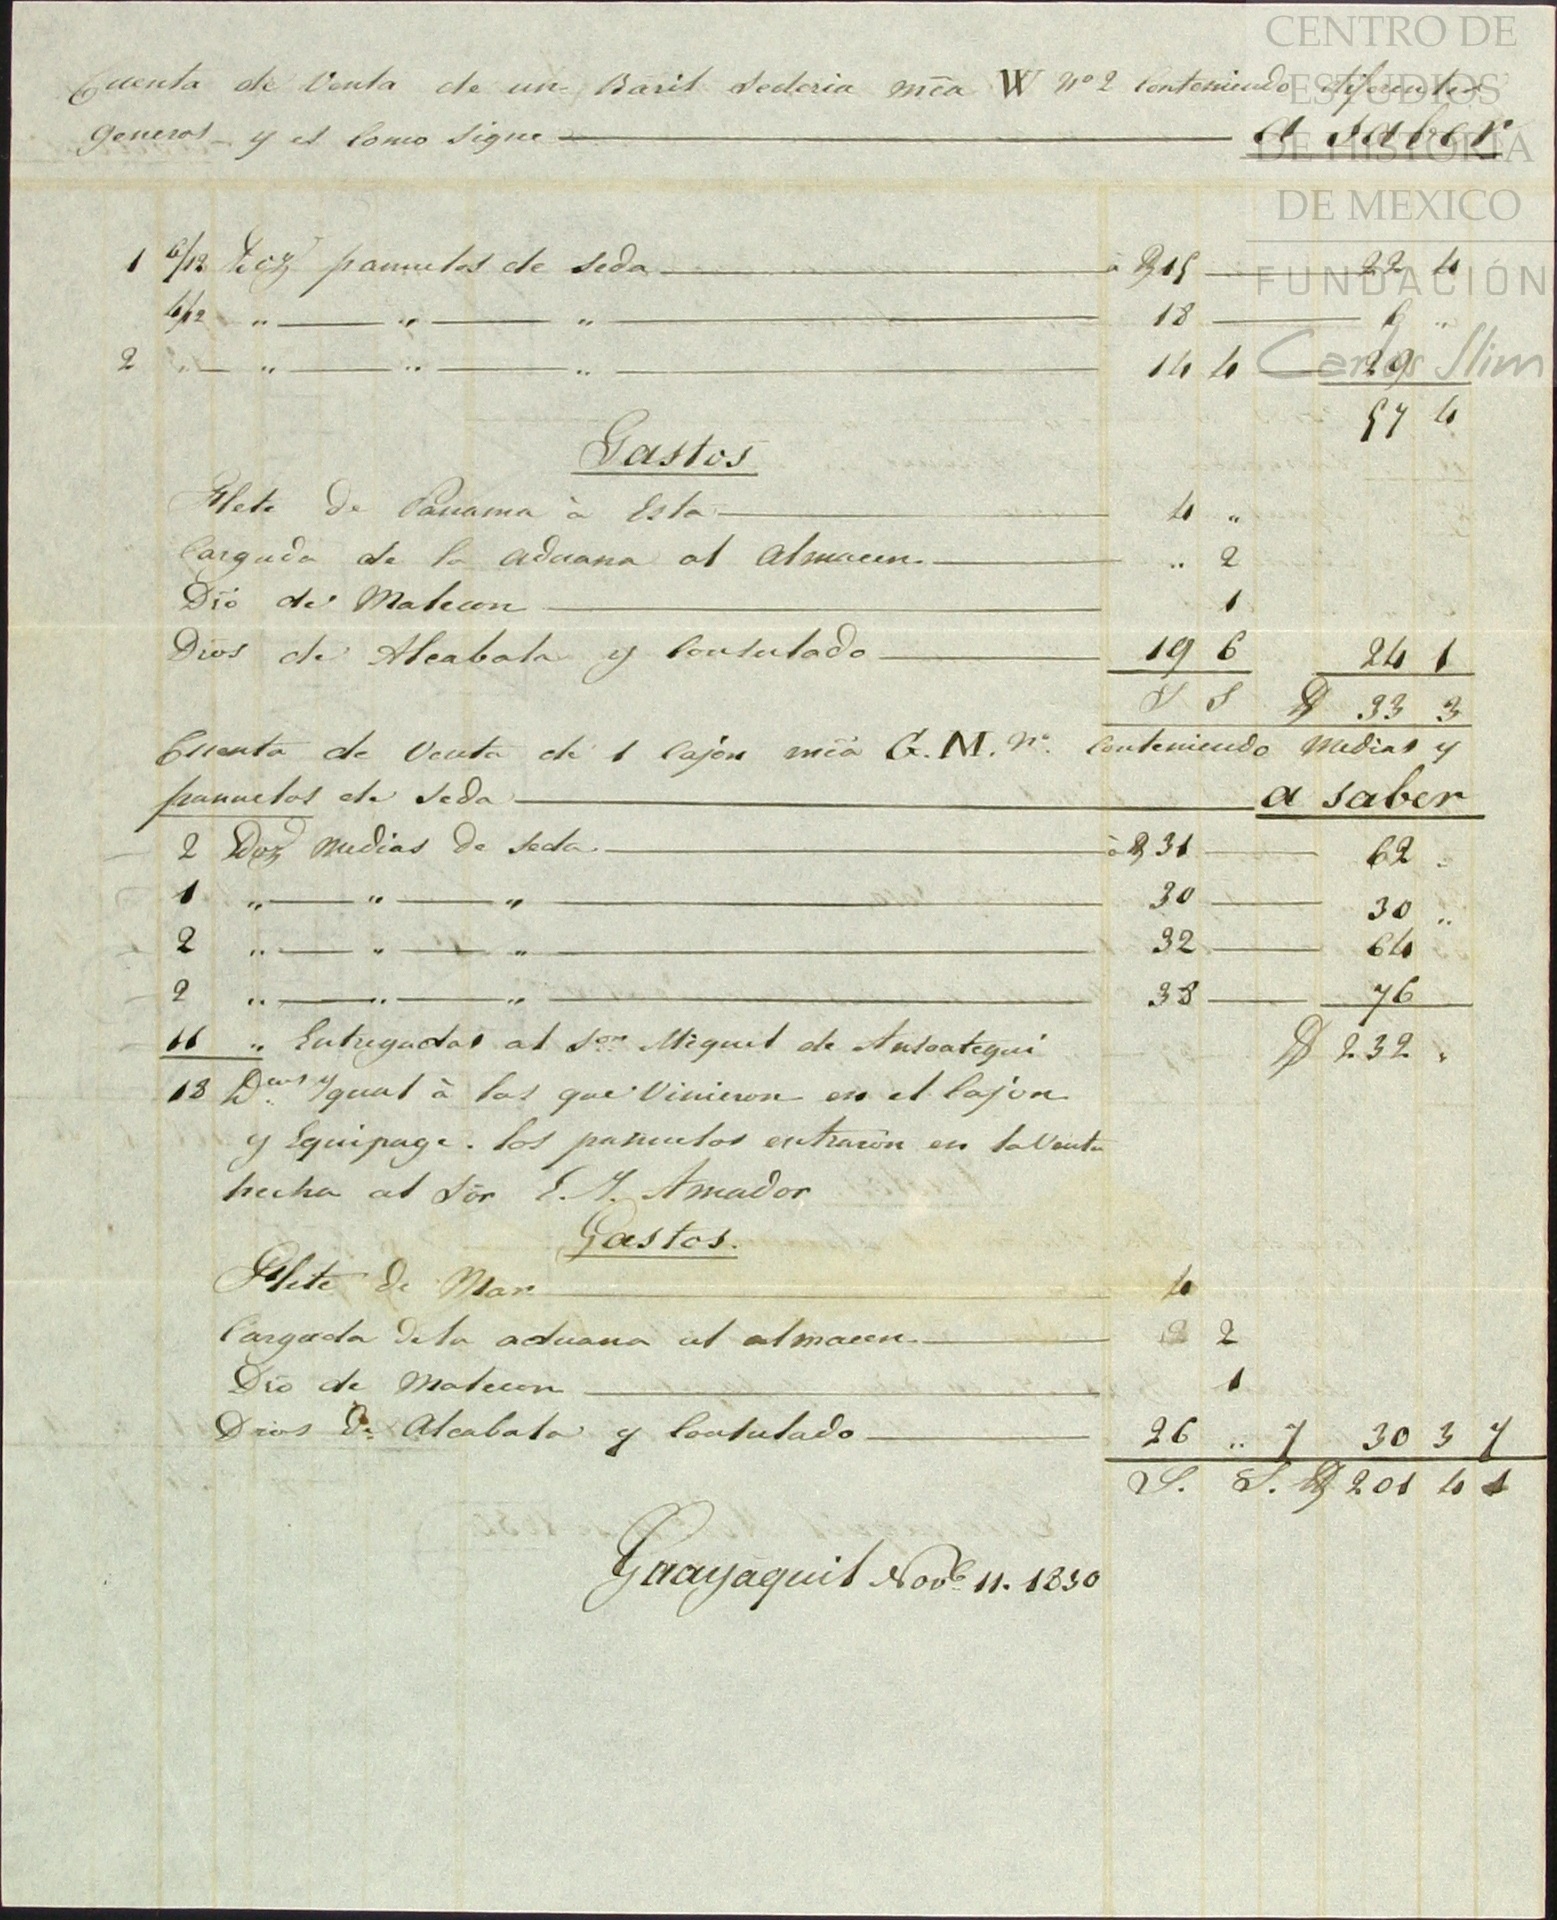 CENTRO DE
ESTUDIOS
DE HISTORIA
DE MEXICO
FUNDACIÓN
Carlos Slim
Cuenta de Venta de un Baril Sederia mca W Nº 2 Conteniendo diferentes
generos y es Como Sigue a saber
1 6/12 Doz pannuelos de seda à $15 22 4
4/12 " " " 18 6 "
2 " " " " 14 4 29
57 4
Gastos
Flete de Panama à Esta 4 "
Cargada de la aduana al Almacen " 2
Dro de Malecon 1
Dros de Alcabala y Consulado 19 6 24 1
S S $ 33 3
Cuenta de Venta de 1 Cajon mca G. M. Nº. Conteniendo Medias y
panuelos de seda a saber
2 Doz Medias de seda à $ 31 62 "
1 " " " 30 30 "
2 " " " 32 64
2 " " " 38 76
11 " Entregadas al Sor Miguel de Ansoategui $ 232 "
18 Dnas Ygual à las que Vinieron en el Cajon
y Equipage. los panuelos entraron en la Venta
hecha al Sor E. Y. Amador
Gastos.
Flete de Mar 4
Cargada de la aduana al almacen 2
Dro de Malecon 1
Dros de Alcabala y Consulado 26 " 7 30 3 7
S. S. $ 201 4 1
Guayaquil Nove 11. 1830